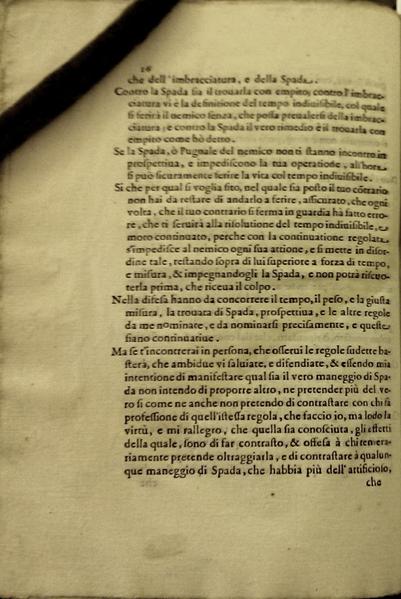 16
che dell'imbracciatura, e della Spada.
Contro la Spada sia il trouarla con empito, contro l'imbrac-
ciatura vi è la definitione del tempo indiuisibile, col quale
si ferirà il nemico senza, che possa preualersi della imbrac-
ciatura; e contro la Spada il vero rimedio è il trouarla con
empito come hò detto.
Se la Spada, ò Pugnale del nemico non ti stanno incontro in
prospettiua, e impediscono la tua operatione, all'hora
si può sicuramente ferire la vita col tempo indiuisibile.
Si che per qual si voglia sito, nel quale sia posto il tuo cõtrario
non hai da restare di andarlo a ferire, assicurato, che ogni
volta, che il tuo contrario si ferma in guardia ha fatto erro-
re, che ti seruirà alla risolutione del tempo indiuisibile, e
moto continuato, perche con la continuatione regolata
s'impedisce al nemico ogni sua attione, e si mette in disor-
dine tale, restando sopra di lui superiore a forza di tempo,
e misura, & impegnandogli la Spada, e non potrà riscuo-
terla prima, che riceua il colpo.
Nella difesa hanno da concorrere il tempo, il peso, e la giusta
misura, la trouata di Spada, prospettiua, e le altre regole
da me nominate, e da nominarsi precisamente, e queste
siano continuatiue.
Ma se t'incontrerai in persona, che osserui le regole sudette ba-
sterà, che ambidue vi saluiate, e difendiate, & essendo mia
intentione di manifestare qual sia il vero maneggio di Spa-
da non intendo di proporre altro, ne pretender più del ve-
ro si come ne anche non pretendo di contrastare con chi fà
professione di quell'istessa regola, che faccio io, ma lodo la
virtù, e mi rallegro, che quella sia conosciuta, gli effetti
della quale, sono di far contrasto, & offesa à chi temera-
riamente pretende oltraggiarla, e di contrastare à qualun-
que maneggio di Spada, che habbia più dell'artificioso,
che